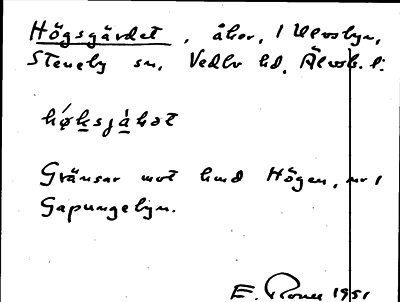 Högsgärdet, åker, 1 Ulvsbyn,
Steneby sn, Vedbo hd, Älvsb. l.
Gränsar mot hmd Högen, nr 1
Gapungebyn.
E. 1951